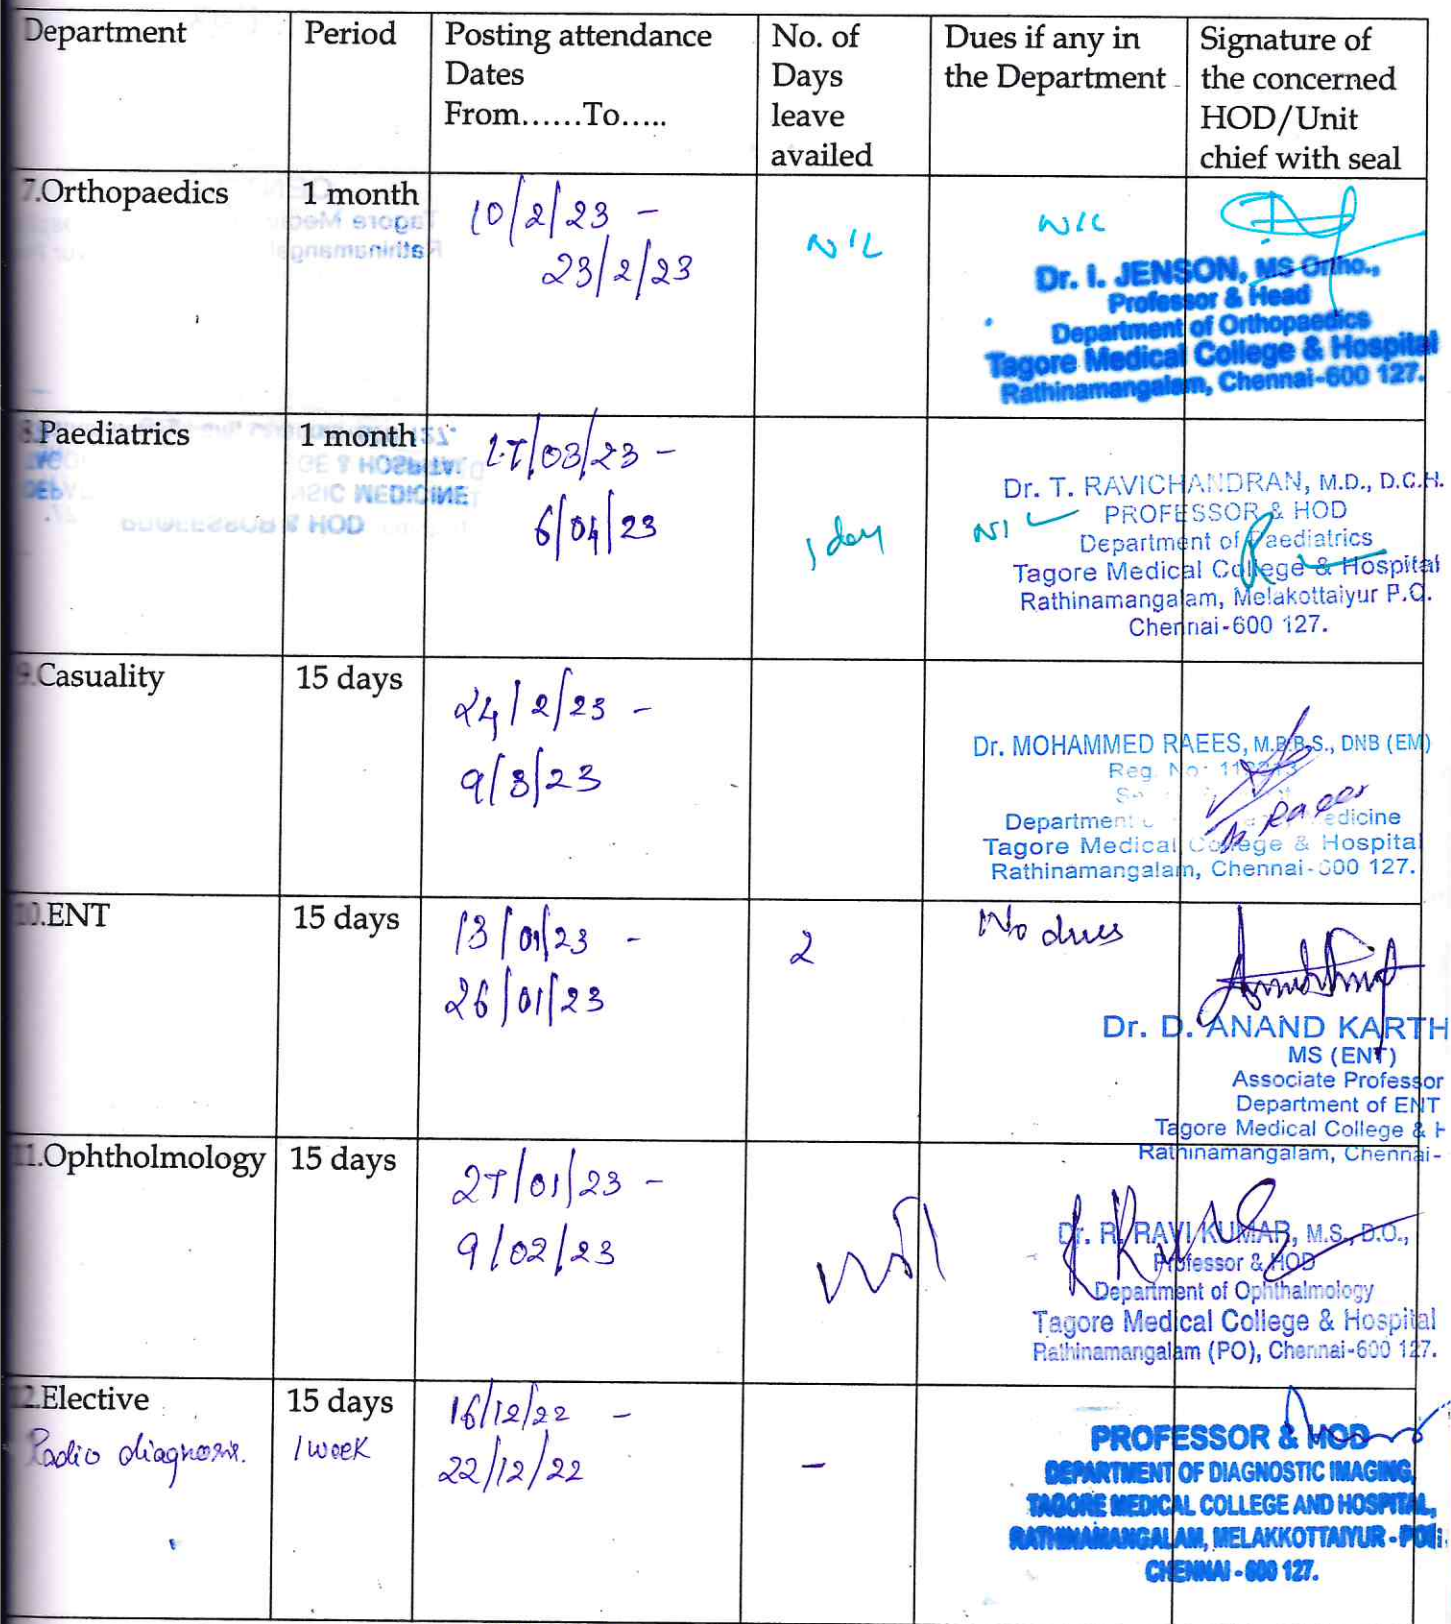 Department
Period
Posting attendance
Dates
From......To.....
No. of
Days
leave
availed
Dues if any in
the Department
Signature of
the concerned
HOD/Unit
chief with seal
7.Orthopaedics
1 month
10/2/23 -
23/2/23
NIL
NIL
Dr. I. JENSON, MS Ortho.,
Professor & Head
Department of Orthopaedics
Tagore Medical College & Hospital
Rathinamangalam, Chennai-600 127.
8.Paediatrics
1 month
27/03/23 -
6/04/23
1 day
NIL
Dr. T. RAVICHANDRAN, M.D., D.C.H.
PROFESSOR & HOD
Department of Paediatrics
Tagore Medical College & Hospital
Rathinamangalam, Melakottaiyur P.O.
Chennai-600 127.
9.Casuality
15 days
24/2/23 -
9/3/23
Dr. MOHAMMED RAEES, M.B.B.S., DNB (EM)
Reg. No:
Department
edicine
Tagore Medical College & Hospital
Rathinamangalam, Chennai-600 127.
10.ENT
15 days
13/01/23 -
26/01/23
2
No dues
Dr. D. ANAND KARTH
MS (ENT)
Associate Professor
Department of ENT
Tagore Medical College & H
Rathinamangalam, Chennai-
11.Ophtholmology
15 days
27/01/23 -
9/02/23
Nil
Dr. R. RAVI KUMAR, M.S., D.O.,
Professor & HOD
Department of Ophthalmology
Tagore Medical College & Hospital
Rathinamangalam (PO), Chennai-600 127.
12.Elective
Radio diagnosis.
15 days
1 week
16/12/22 -
22/12/22
-
PROFESSOR & HOD
DEPARTMENT OF DIAGNOSTIC IMAGING,
TAGORE MEDICAL COLLEGE AND HOSPITAL,
RATHINAMANGALAM, MELAKKOTTAIYUR - PO
CHENNAI - 600 127.